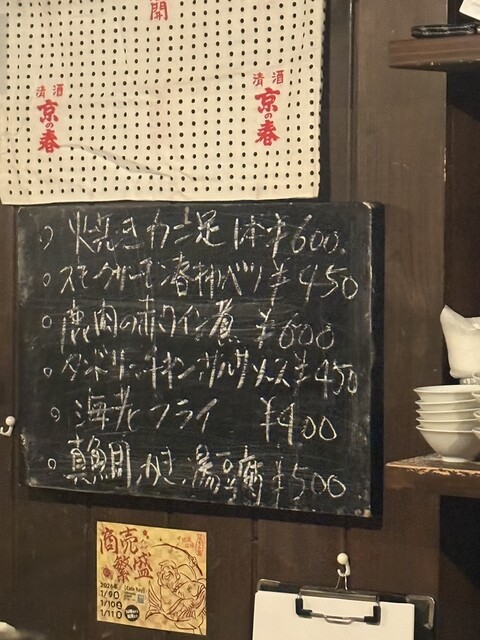 開
清酒
京の春
清酒
京の春
焼きカニ足1本¥600.
スモークサーモン春キャベツ¥450
鹿肉の赤ワイン煮 ¥600
タンドリーチキンサルサソース¥450
海老フライ ¥400
真鯛かき湯豆腐¥500
商売
繁盛
2026年
1/9
1/10
1/11